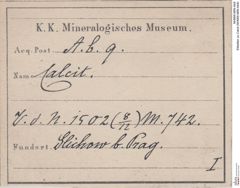 K. K. Mineralogisches Museum.
Acq. Post. A. b. 9.
Nam Calcit.
V. d. N. 1502 (8/12) M. 742.
Fundort. Slichow b. Prag.
I